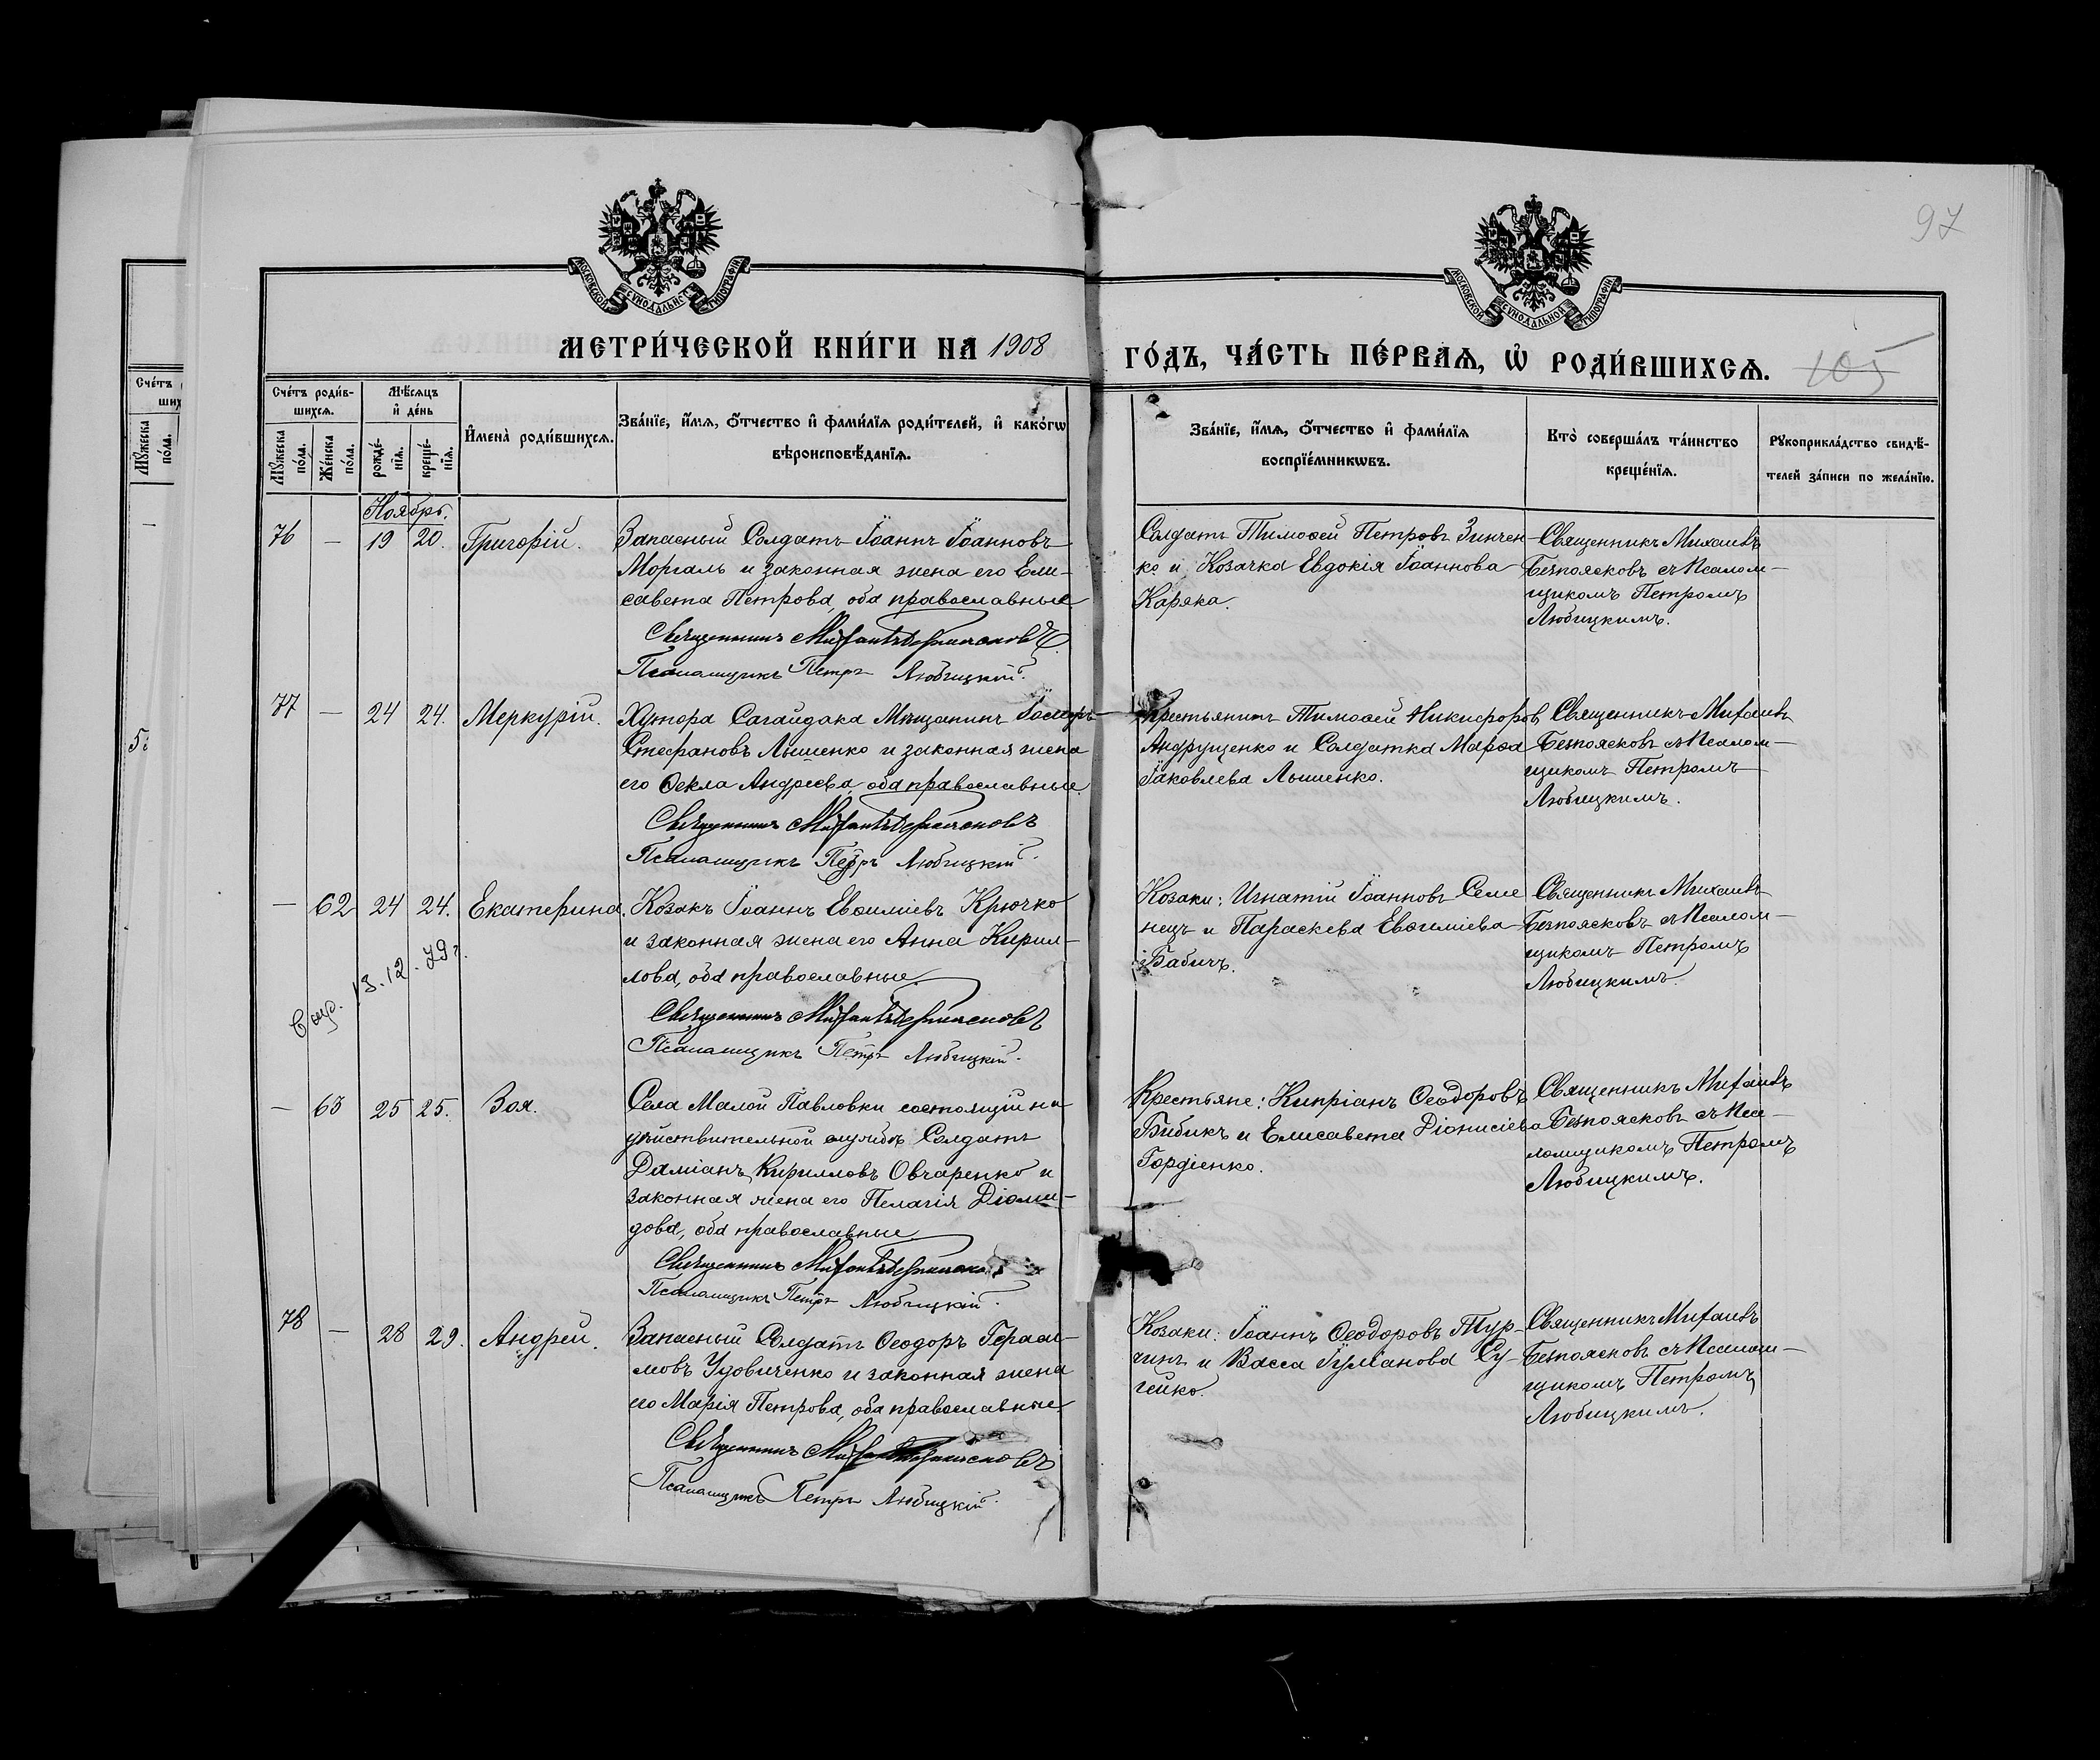 97
МОСКОВСКОЙ СѴНОДАЛЬНОЙ ТИПОГРАФІИ
МОСКОВСКОЙ СѴНОДАЛЬНОЙ ТИПОГРАФІИ
МЕТРИ́ЧЕСКОЙ КНИ́ГИ НА 1908
ГО́ДЪ, ЧА́СТЬ ПЕ́РВАѦ, Ѡ҆ РОДИ́ВШИХСѦ.
105
Сче́тъ роди́в-
шихсѧ.
Мѣ́сѧцъ
и҆ де́нь
Мꙋ́жеска по́ла.
Же́нска по́ла.
рожде́-
нїѧ.
креще́-
нїѧ.
И҆мена̀ роди́вшихсѧ.
Зва́нїе, и҆́мѧ, ѻ҆́тчество и҆ фами́лїѧ роди́телей, и҆ како́гѡ
вѣроисповѣ́данїѧ.
Зва́нїе, и҆́мѧ, ѻ҆́тчество и҆ фами́лїѧ
воспрїе́мникѡвъ.
Кто̀ соверша́лъ та́инство
креще́нїѧ.
Рꙋкоприкла́дство свидѣ́-
телей за́писи по жела́нїю.
Ноябрь.
76 — 19 20. Григорій.
Запасный Солдатъ Іоаннъ Іоанновъ
Моргаль и законная жена его Ели-
савета Петрова, оба православные
Священникъ Михаилъ Безпоясковъ
Псаломщикъ Петръ Любицкій.
Солдатъ Тимоѳей Петровъ Зинчен-
ко и Козачка Евдокія Іоаннова
Каряка.
Священникъ Михаилъ
Безпоясковъ съ Псалом-
щикомъ Петромъ
Любицкимъ.
77 — 24 24. Меркурій.
Хутора Сагайдака Мѣщанинъ Іосифъ
Стефановъ Лышенко и законная жена
его Ѳекла Андреева, оба православные.
Священникъ Михаилъ Безпоясковъ
Псаломщикъ Петръ Любицкій.
Крестьянинъ Тимоѳей Никифоровъ
Андрущенко и Солдатка Марѳа
Іаковлева Лышенко.
Священникъ Михаилъ
Безпоясковъ съ Псалом-
щикомъ Петромъ
Любицкимъ.
— 62 24 24. Екатерина.
13.12.79г.
Козакъ Іоаннъ Евѳиміевъ Крючко
и законная жена его Анна Кирил-
лова, оба православные.
Священникъ Михаилъ Безпоясковъ
Псаломщикъ Петръ Любицкій.
Козаки: Игнатій Іоанновъ Семе
нецъ и Параскева Евѳиміева
Бабичъ.
Священникъ Михаилъ
Безпоясковъ съ Псалом-
щикомъ Петромъ
Любицкимъ.
— 63 25 25. Зоя.
Села Малой Павловки состоящій на
дѣйствительной службѣ Солдатъ
Даміанъ Кирилловъ Овчаренко и
законная жена его Пелагія Діоми-
дова, оба православные
Священникъ Михаилъ Безпоясковъ
Псаломщикъ Петръ Любицкій.
Крестьяне: Кипріанъ Ѳеодоровъ
Бибикъ и Елисавета Діонисіева
Гордіенко.
Священникъ Михаилъ
Безпоясковъ съ Пса-
ломщикомъ Петромъ
Любицкимъ.
78 — 28 29. Андрей.
Запасный Солдатъ Ѳеодоръ Гераси-
мовъ Удовиченко и законная жена
его Марія Петрова, оба православные
Священникъ Михаилъ Безпоясковъ
Псаломщикъ Петръ Любицкій.
Козаки: Іоаннъ Ѳеодоровъ Тур-
чинъ и Васса Іуліанова Су-
гейко.
Священникъ Михаилъ
Безпоясковъ съ Псалом-
щикомъ Петромъ
Любицкимъ.